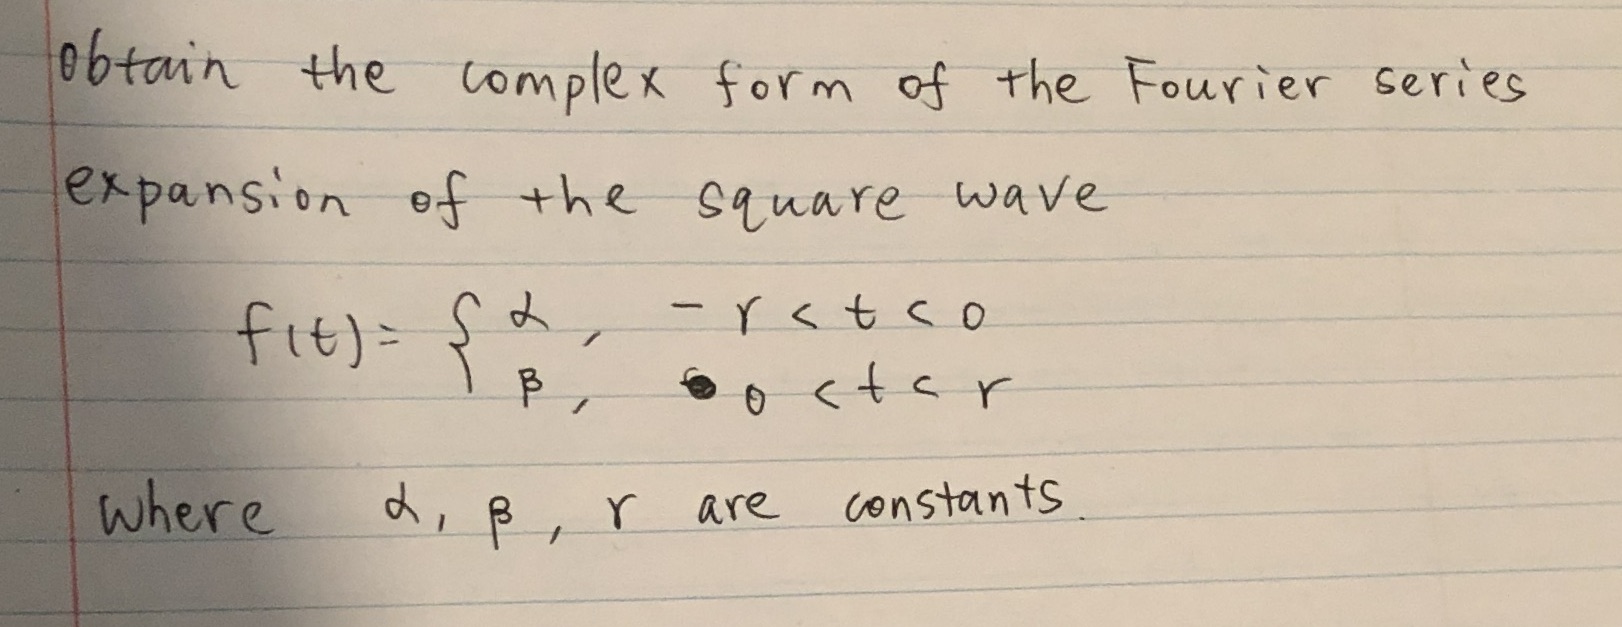 obtain the complex form of the Fourier series
expansion of the square wave
f(t) = { α, -r < t < 0
β, 0 < t < r
where α, β, r are constants.